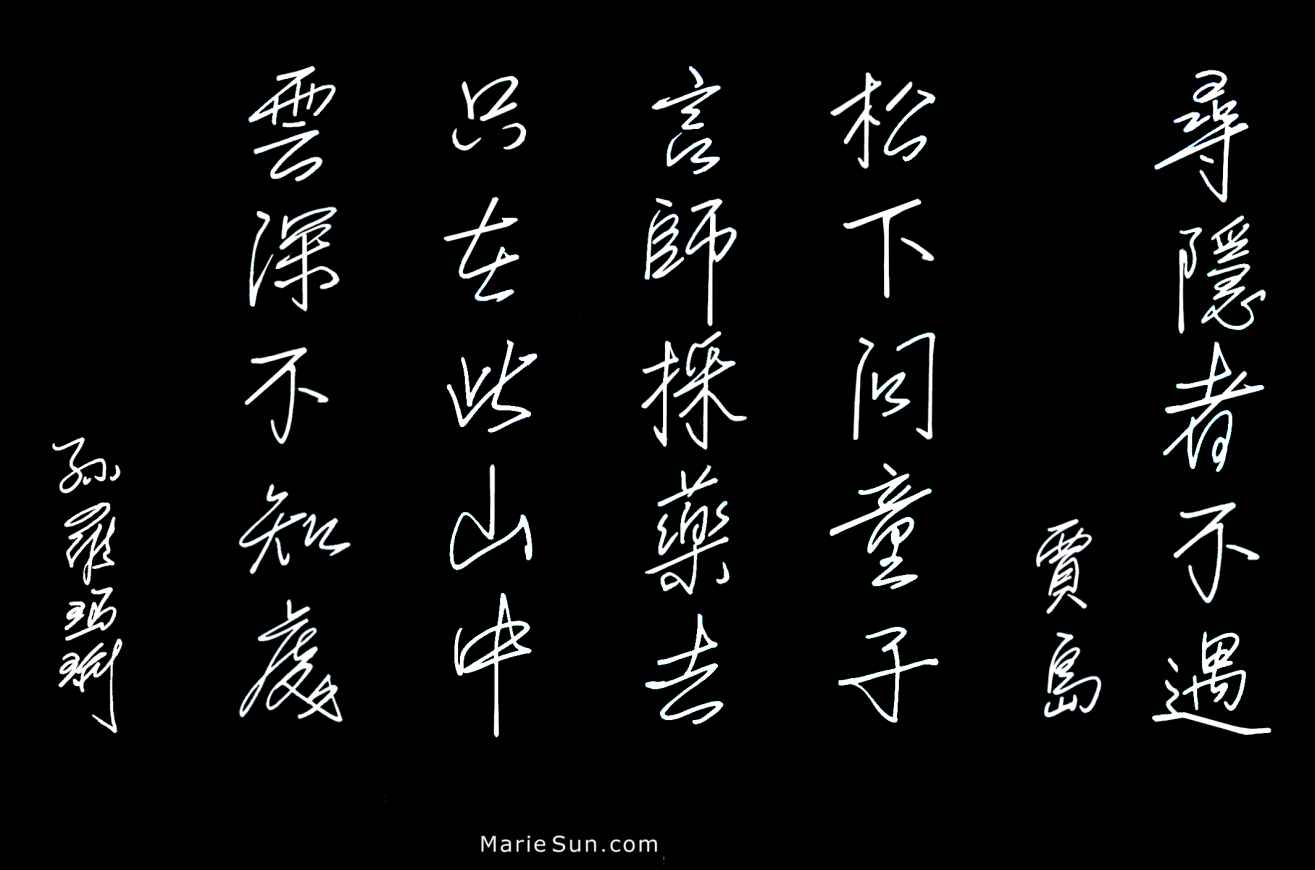 尋隱者不遇
賈島
松下問童子
言師採藥去
只在此山中
雲深不知處
孫羅瑪琍
MarieSun.com